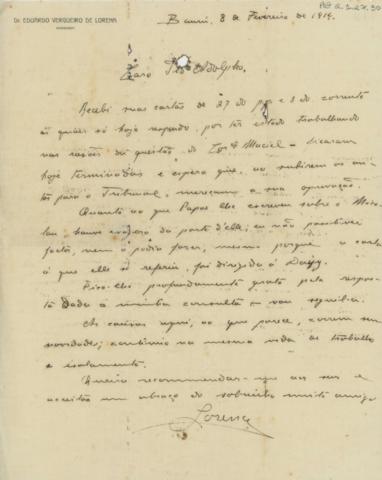 Dr. EDUARDO VERGUEIRO DE LORENA
ADVOGADO
Baurú, 8 de Fevereiro de 1919.
Caro Adolpho.
Recebi suas cartas de 27 do p.p. e 3 do corrente
ás quaes só hoje respondo, por ter estado trabalhando
nas razões da questão do Maciel – ficaram
hoje terminadas e espero que, ao subirem os au-
tos para o Tribunal, mereçam a sua approvação.
Quanto ao que Papae lhe escreveu sobre o
houve exagero da parte d'elle; eu não
factos, nem o podia fazer, mesmo porque a carta
á que elle se referiu, foi dirigida á
Fico-lhe profundamente grato pela respos-
ta dada á minha consulta –
As cousas aqui, ao que parece, correm sem
novidades; continúo na mesma vida de trabalho
e isolamento.
Queira recommendar-me aos seus e
acceitar um abraço do sobrinho muito amigo
Lorena